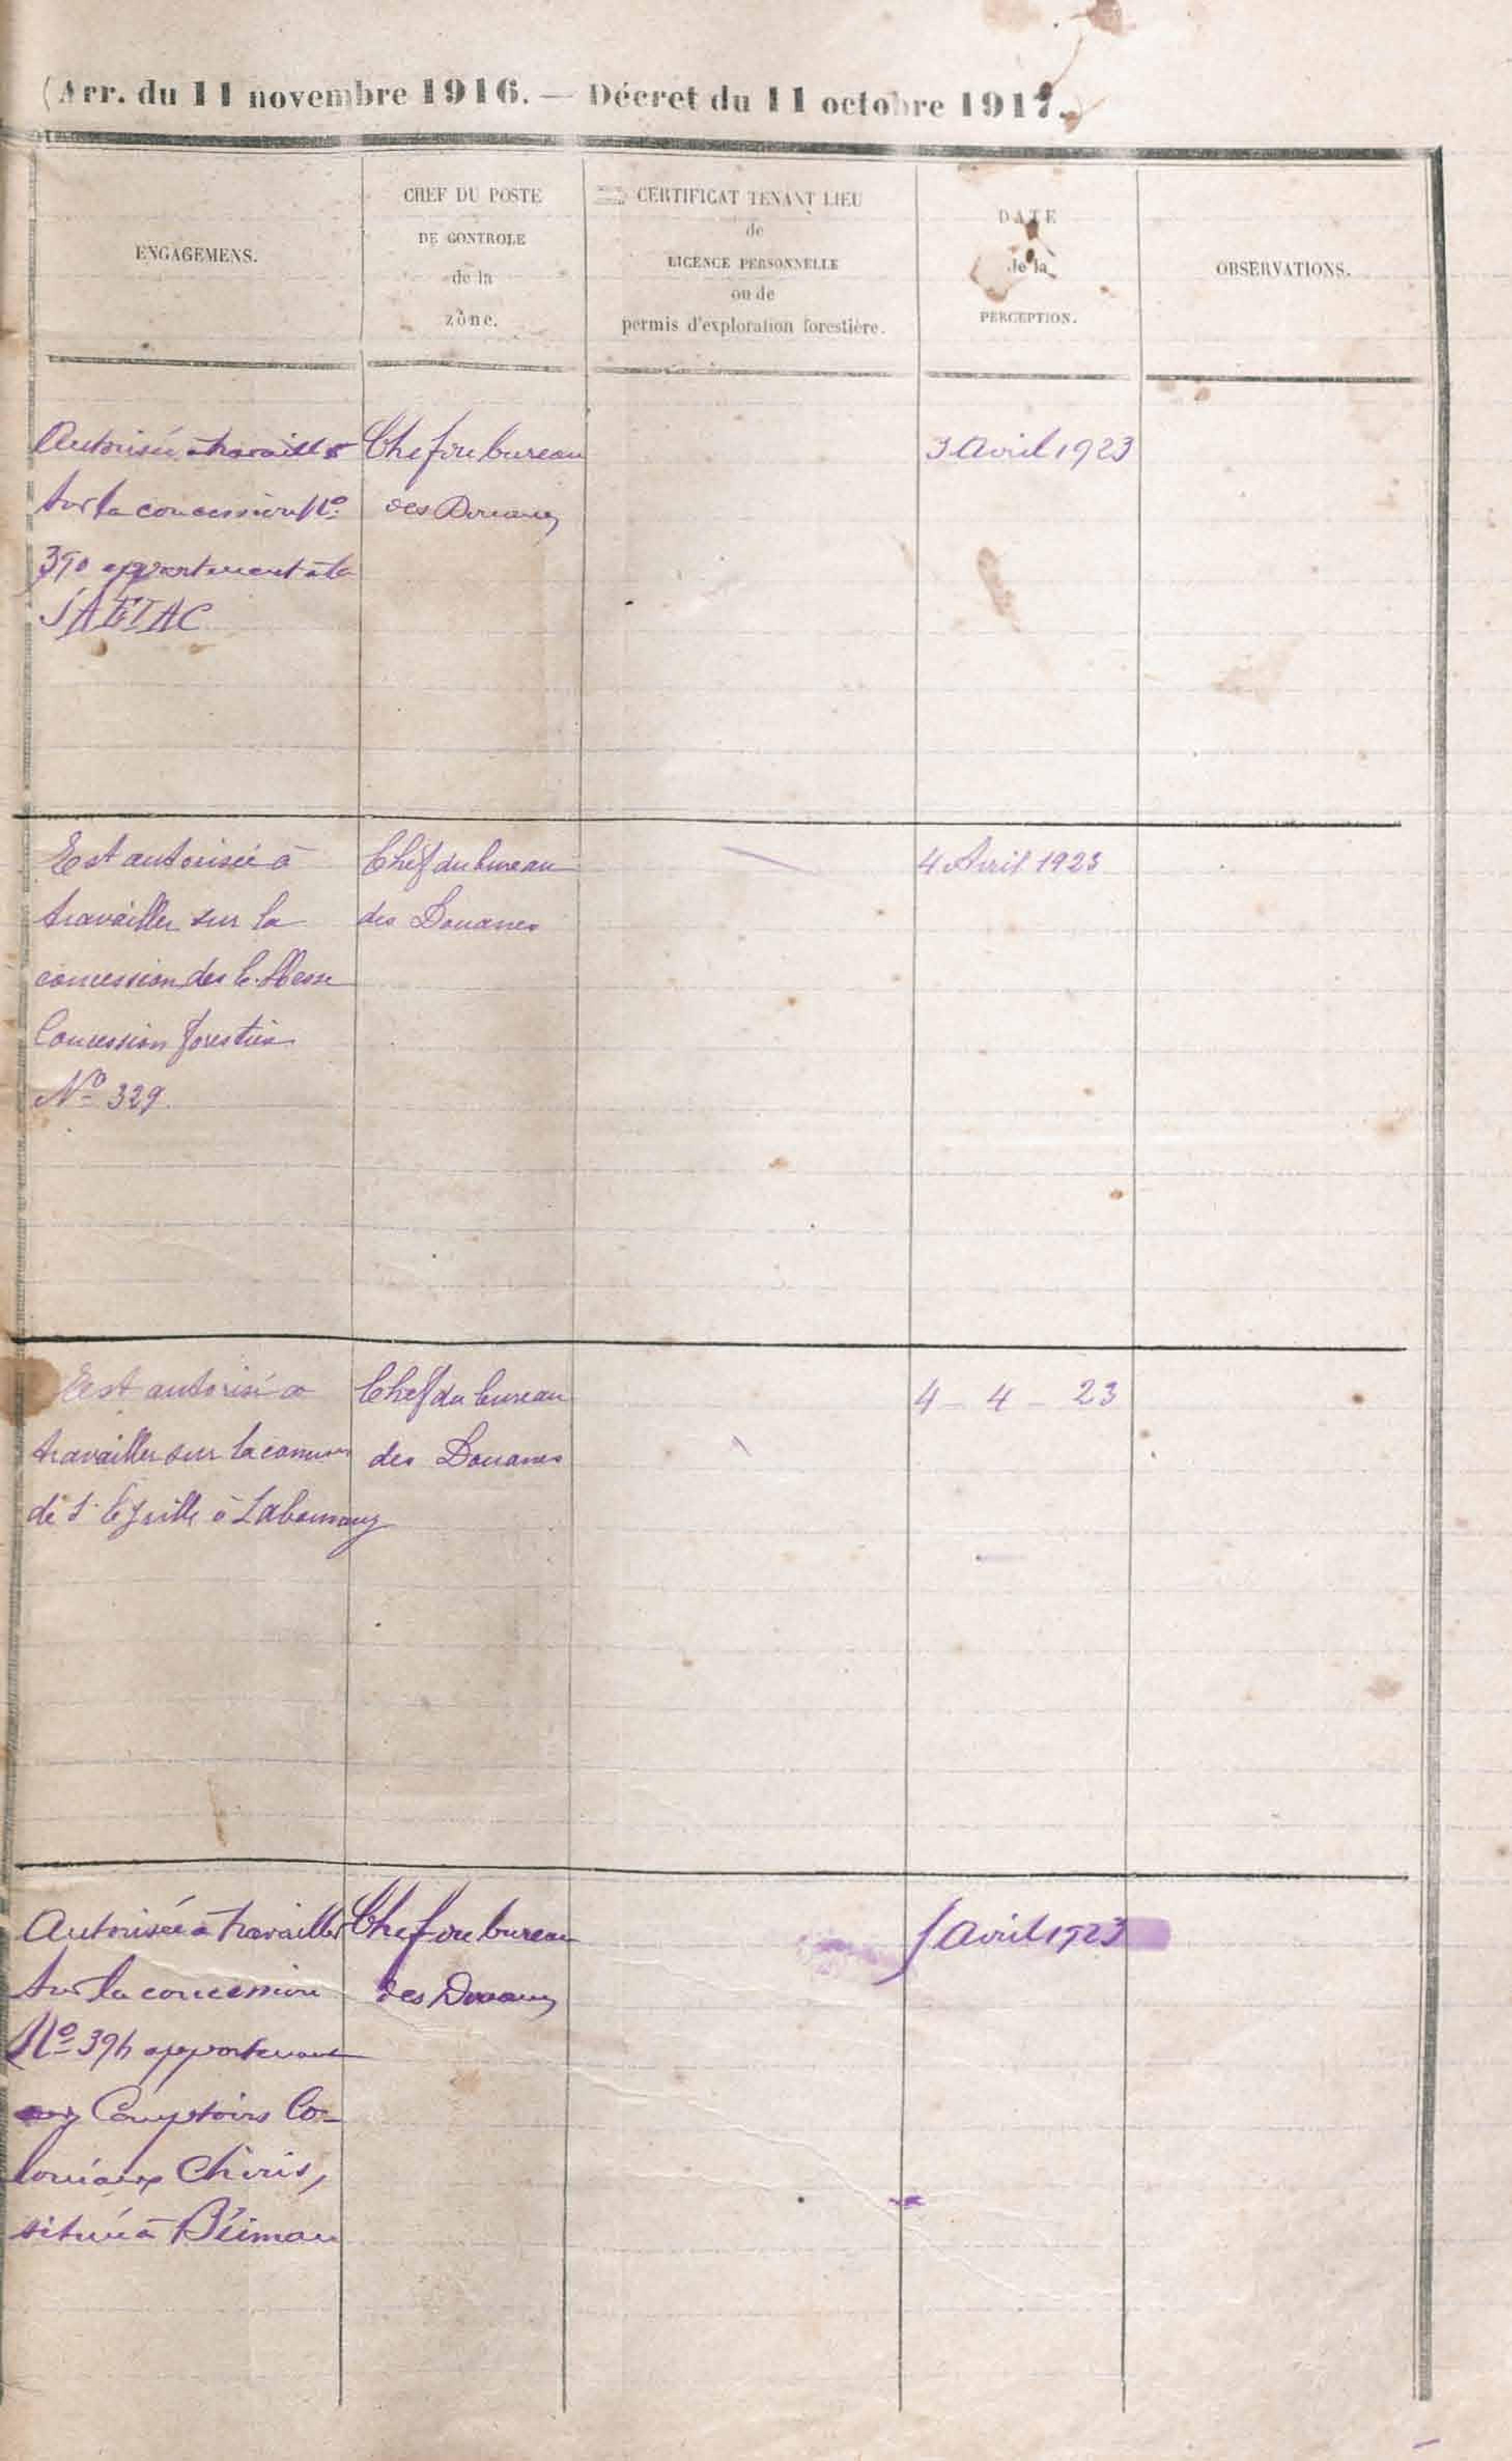 (Arr. du 11 novembre 1916. — Décret du 11 octobre 1917.
ENGAGEMENS.
CHEF DU POSTE
DE CONTROLE
de la
zône.
CERTIFICAT TENANT LIEU
de
LICENCE PERSONNELLE
ou de
permis d'exploration forestière.
DATE
de la
PERCEPTION.
OBSERVATIONS.
Autorisée à travailler
sur la concession No
390 appartenant à la
Chef du bureau
des Douanes
3 Avril 1923
Est autorisée à
travailler sur la
concession des
Concession forestière
No 329.
Chef du bureau
des Douanes
4 Avril 1923
Est autorisé à
travailler sur la
de
Chef du bureau
des Douanes
4 - 4 - 23
Autorisée à travailler
sur la concession
No 396 appartenant
aux Comptoirs Co-
loniaux Chiris,
située à
Chef du bureau
des Douanes
Avril 1923